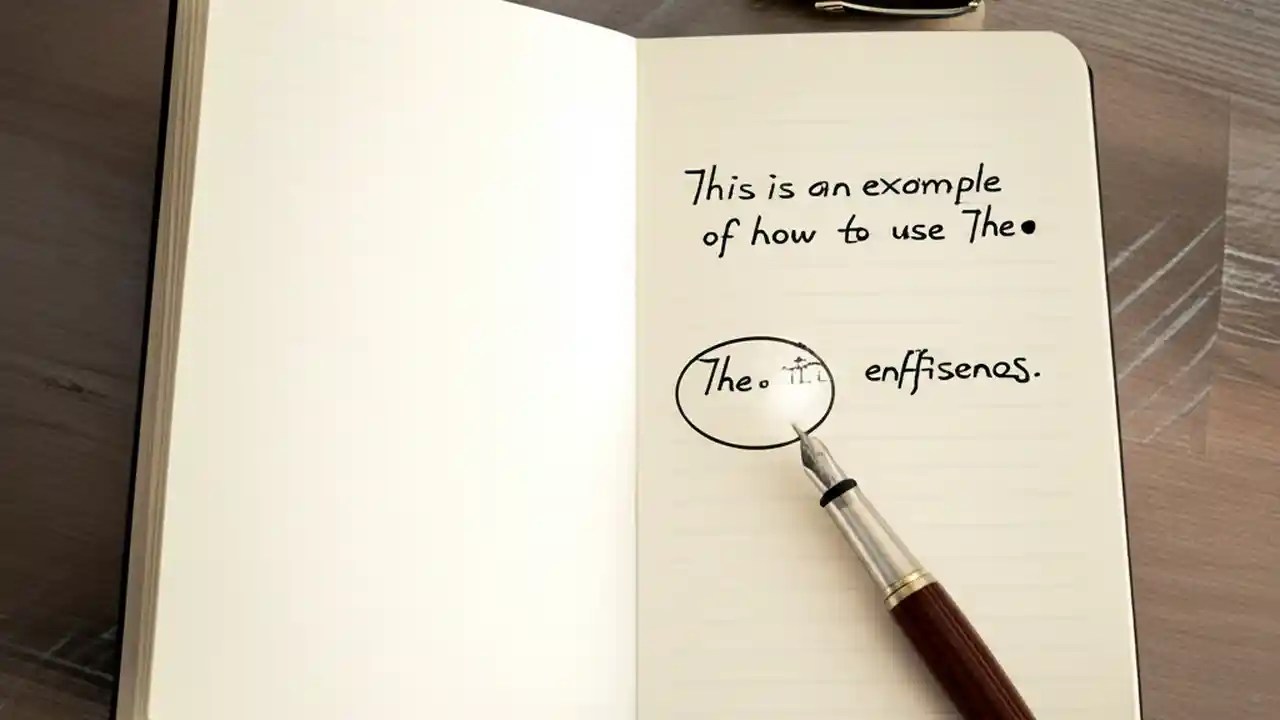 This is an example
of how to use The.
The. enffisenas.